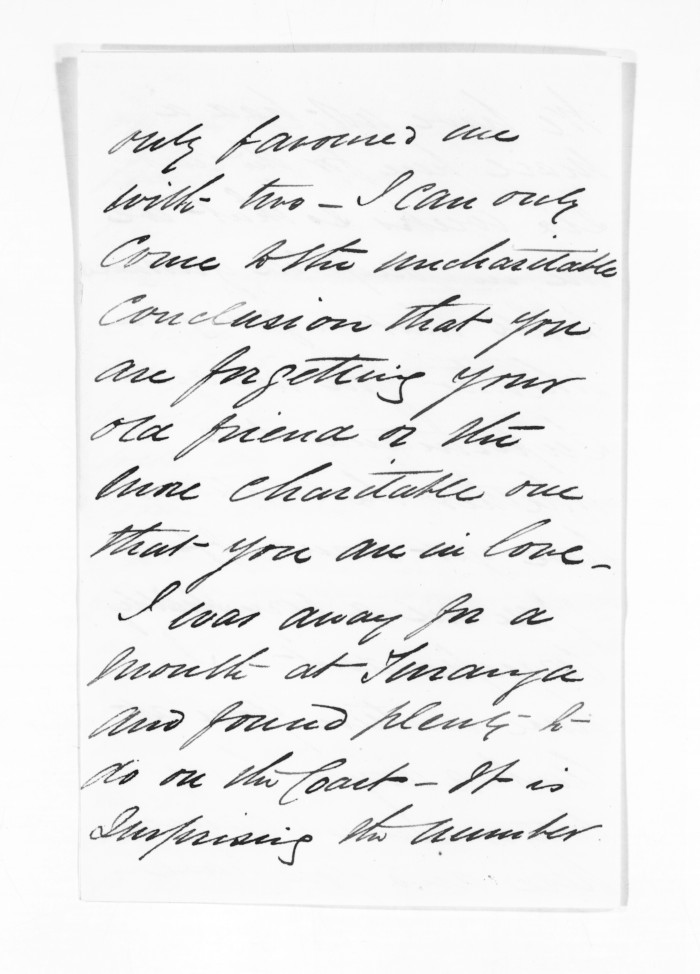 only favoured me
with two – I can only
Come to the uncharitable
Conclusion that you
are forgetting your
old friend or the
more charitable one
that you are in love –
I was away for a
month at
and found plenty to
do on the Coast – It is
Surprising the number